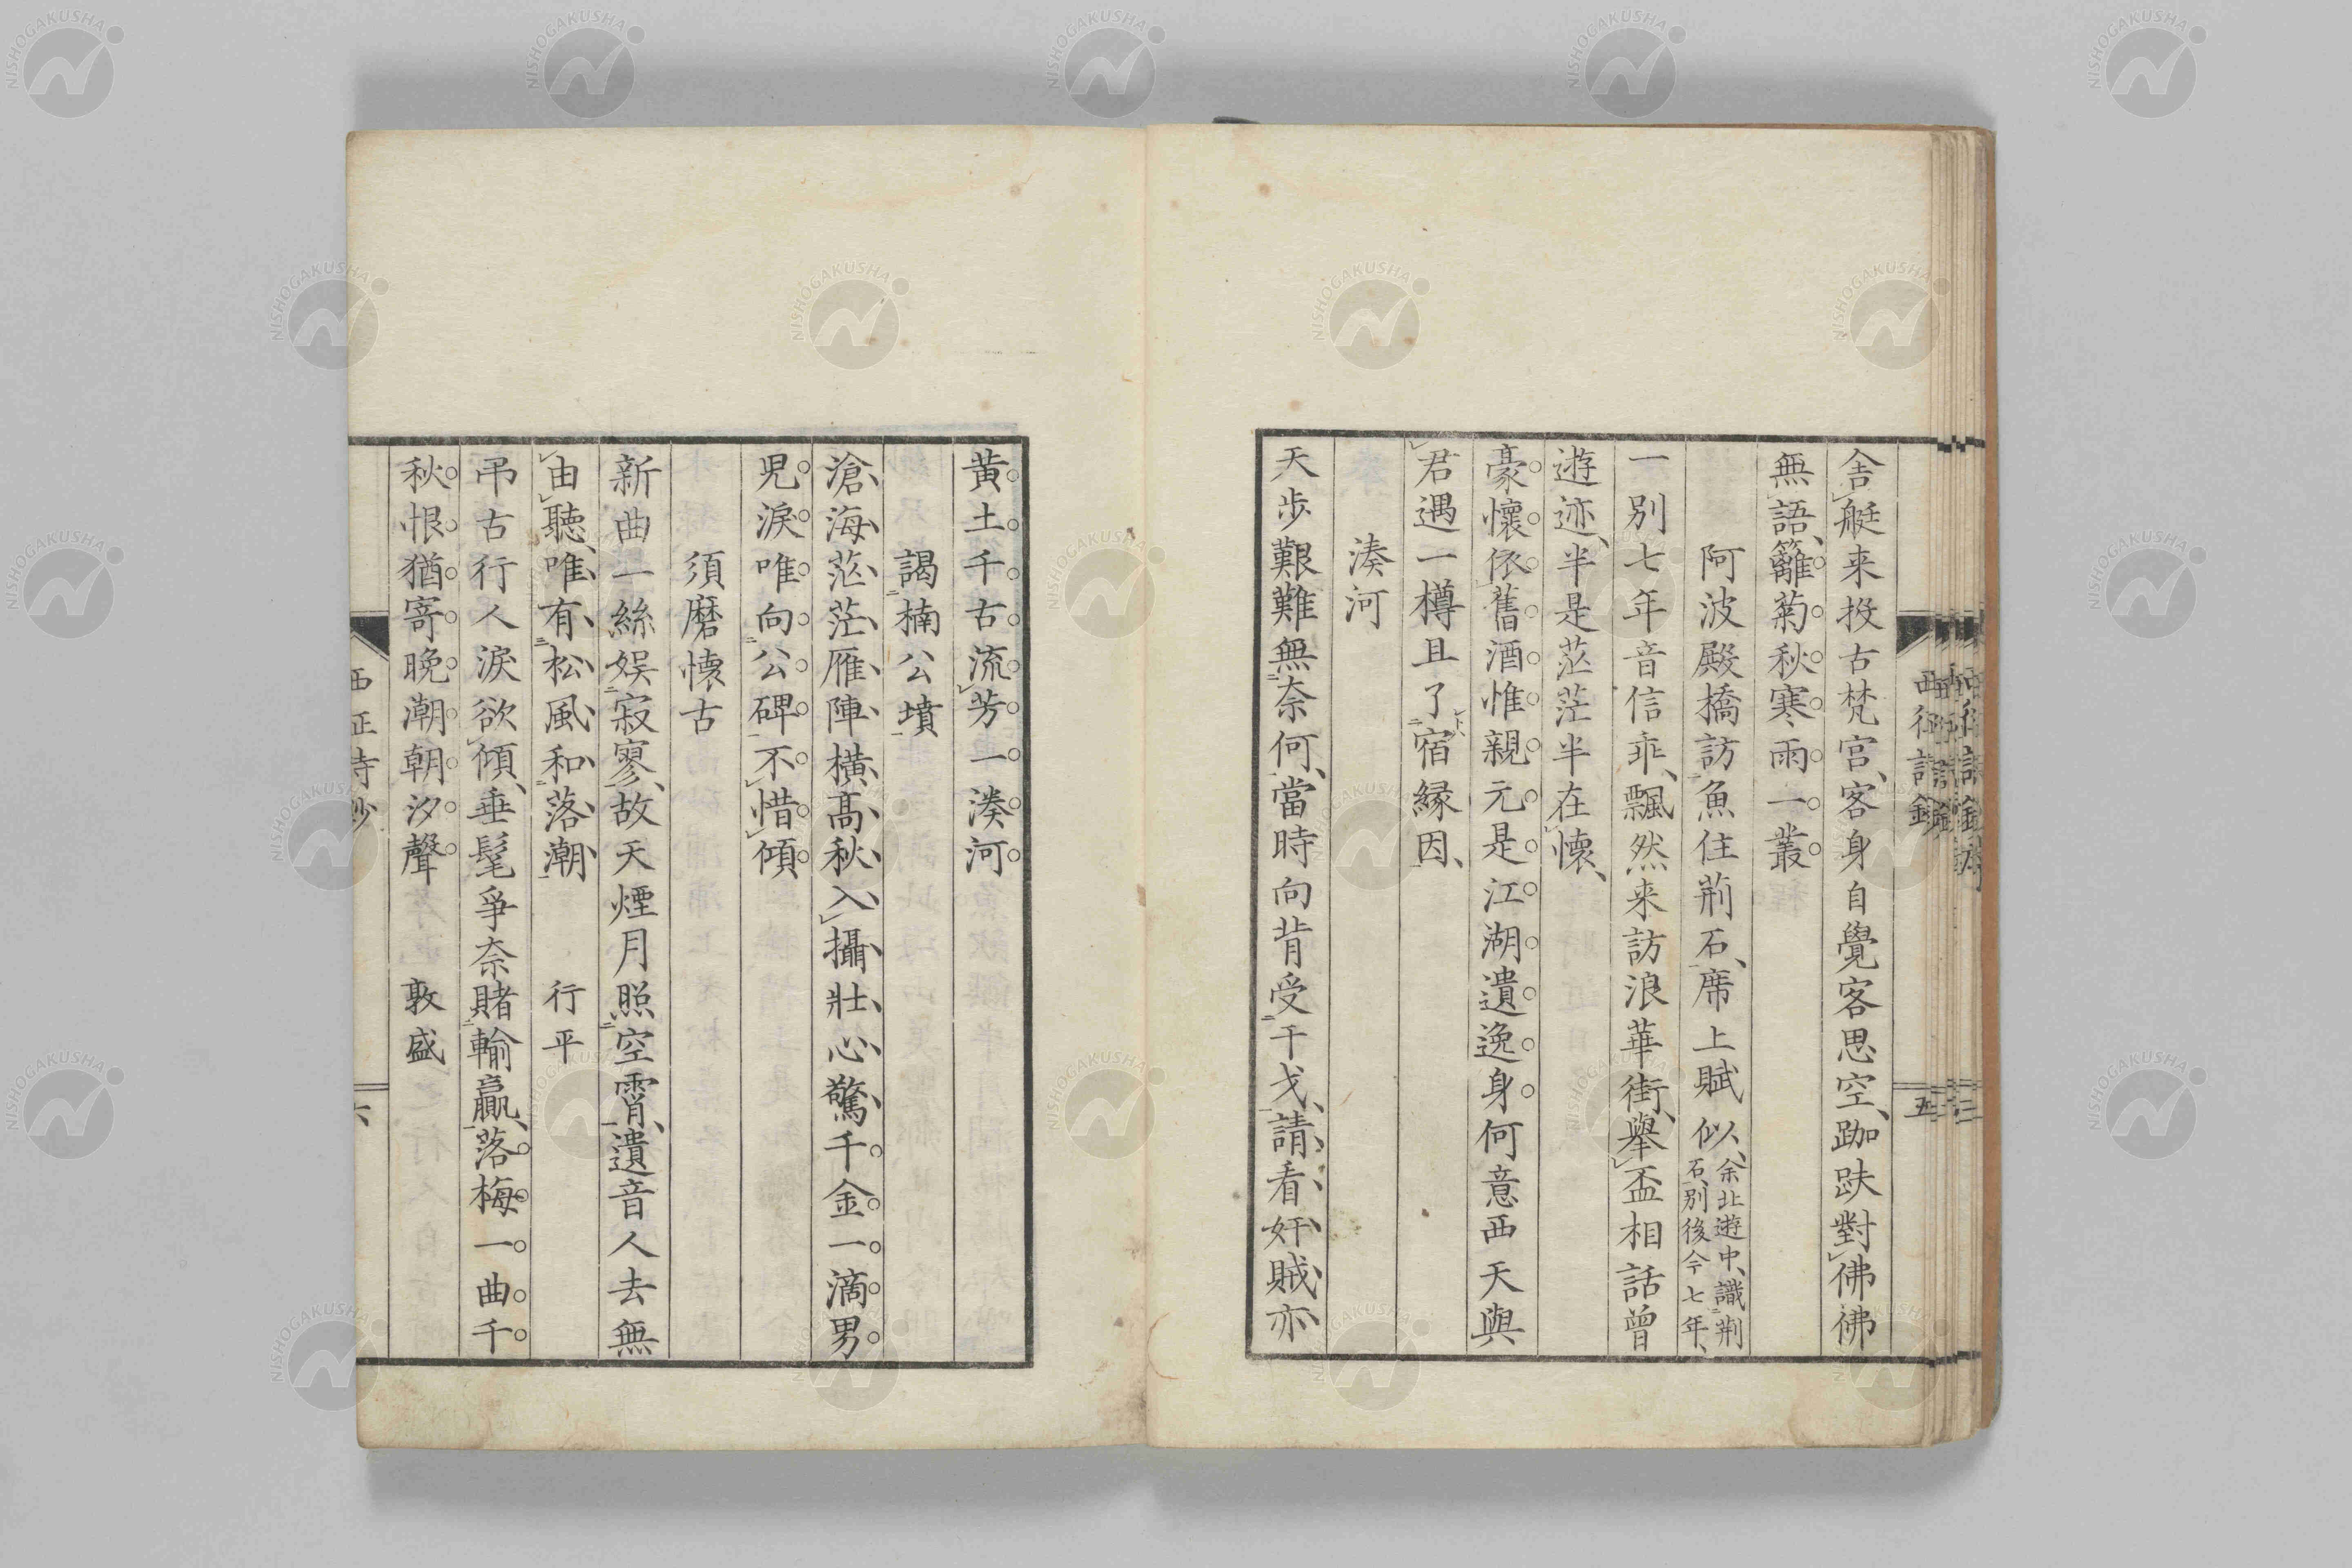 舎艇来投古梵宮客身自覺客思空跏趺對佛佛
無語籬菊秋寒雨一叢
阿波殿橋訪魚住荊石席上賦似余北遊中識荊石別後今七年
一別七年音信乖飄然来訪浪華街舉盃相話曽
遊迹半是茫茫半在懷
豪懷依舊酒惟親元是江湖遺逸身何意西天與
君遇一樽且了宿縁因
湊河
天步艱難無奈何當時向背受干戈請看奸賊亦
五
黄土千古流芳一湊河
謁楠公墳
滄海茫茫雁陣横髙秋入攝壯心驚千金一滴男
児淚唯向公碑不惜傾
須磨懷古
新曲一絲娯寂寥故天煙月照空霄遺音人去無
由聽唯有松風和落潮 行平
弔古行人淚欲傾垂髦爭奈賭輸贏落梅一曲千
秋恨猶寄晚潮朝汐聲 敦盛
六
NISHOGAKUSHA